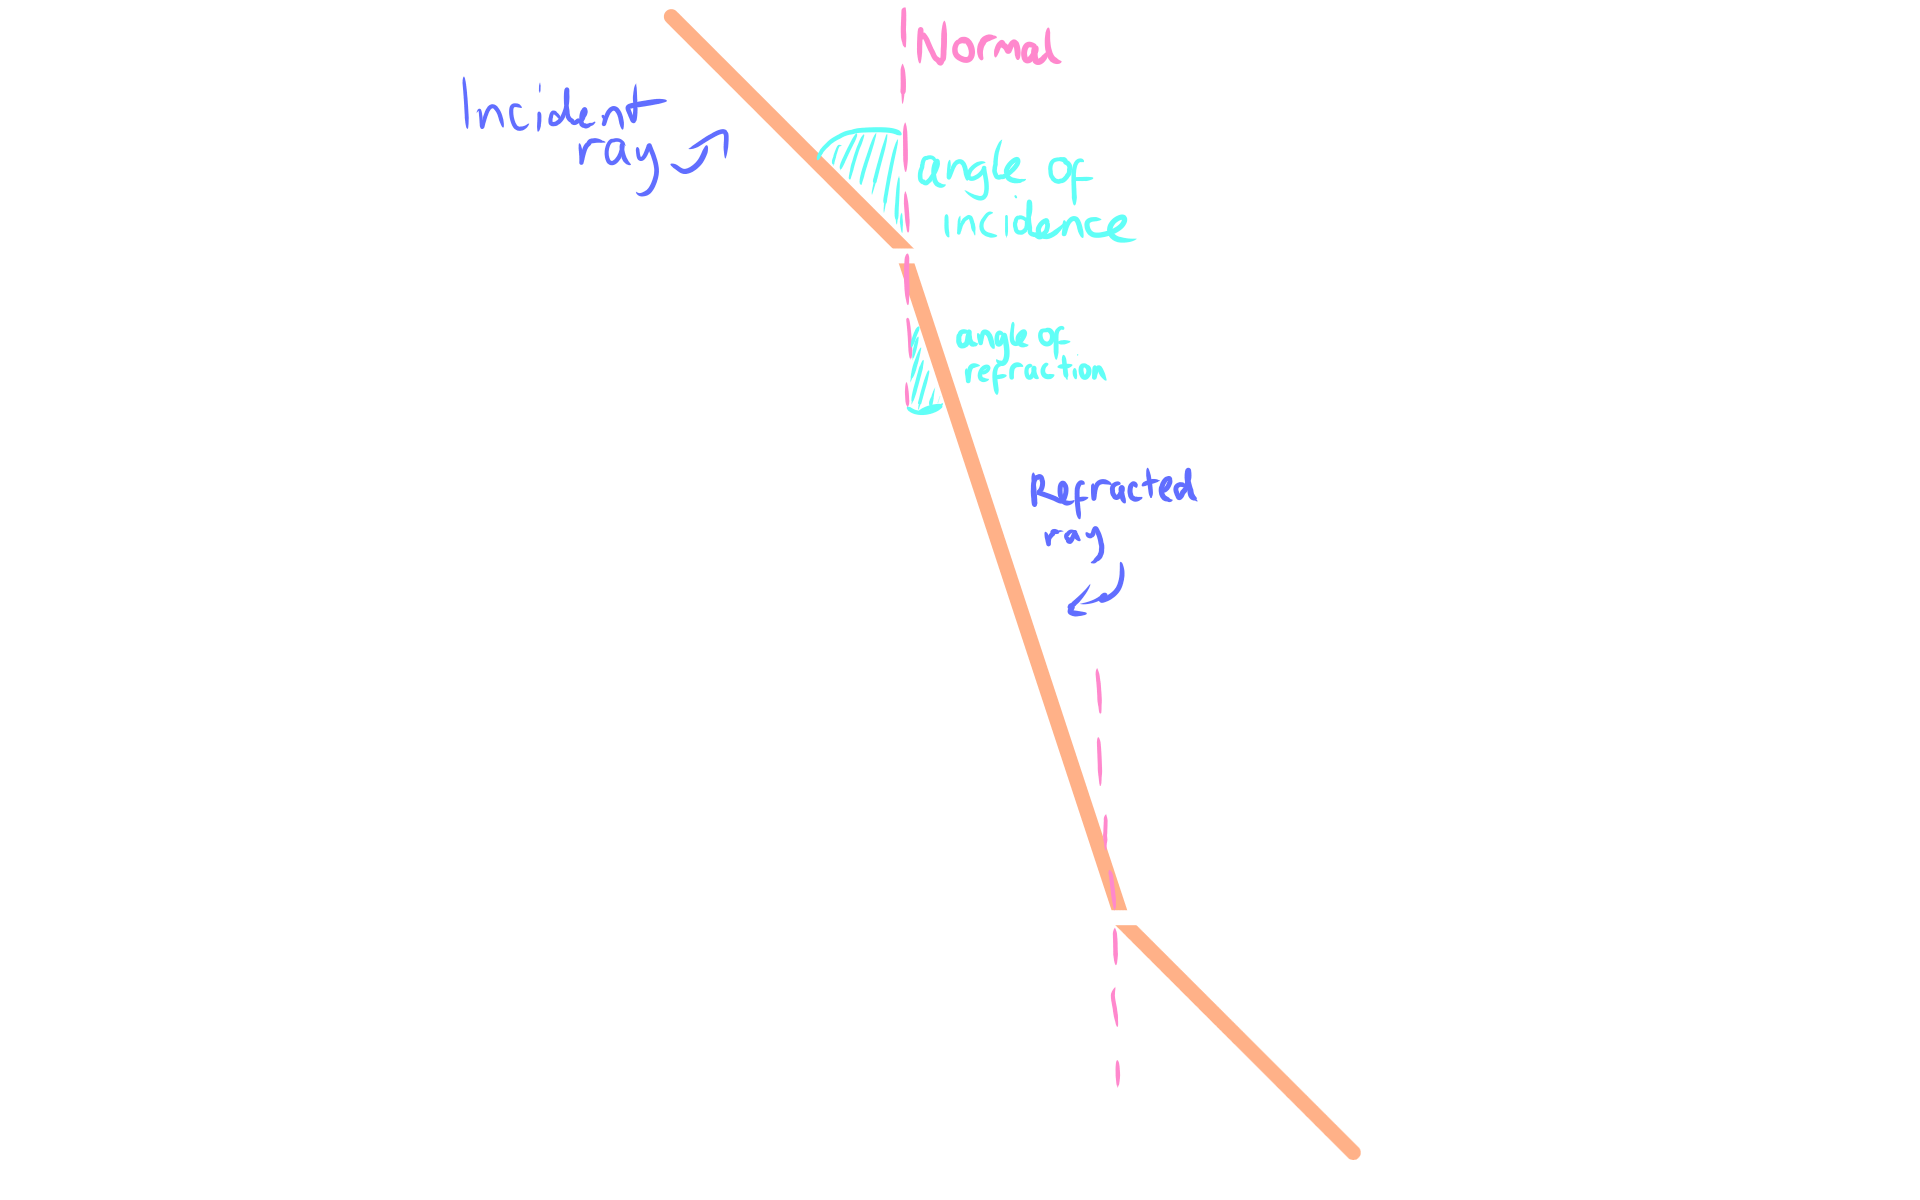 Normal
Incident
ray
angle of
incidence
angle of
refraction
Refracted
ray